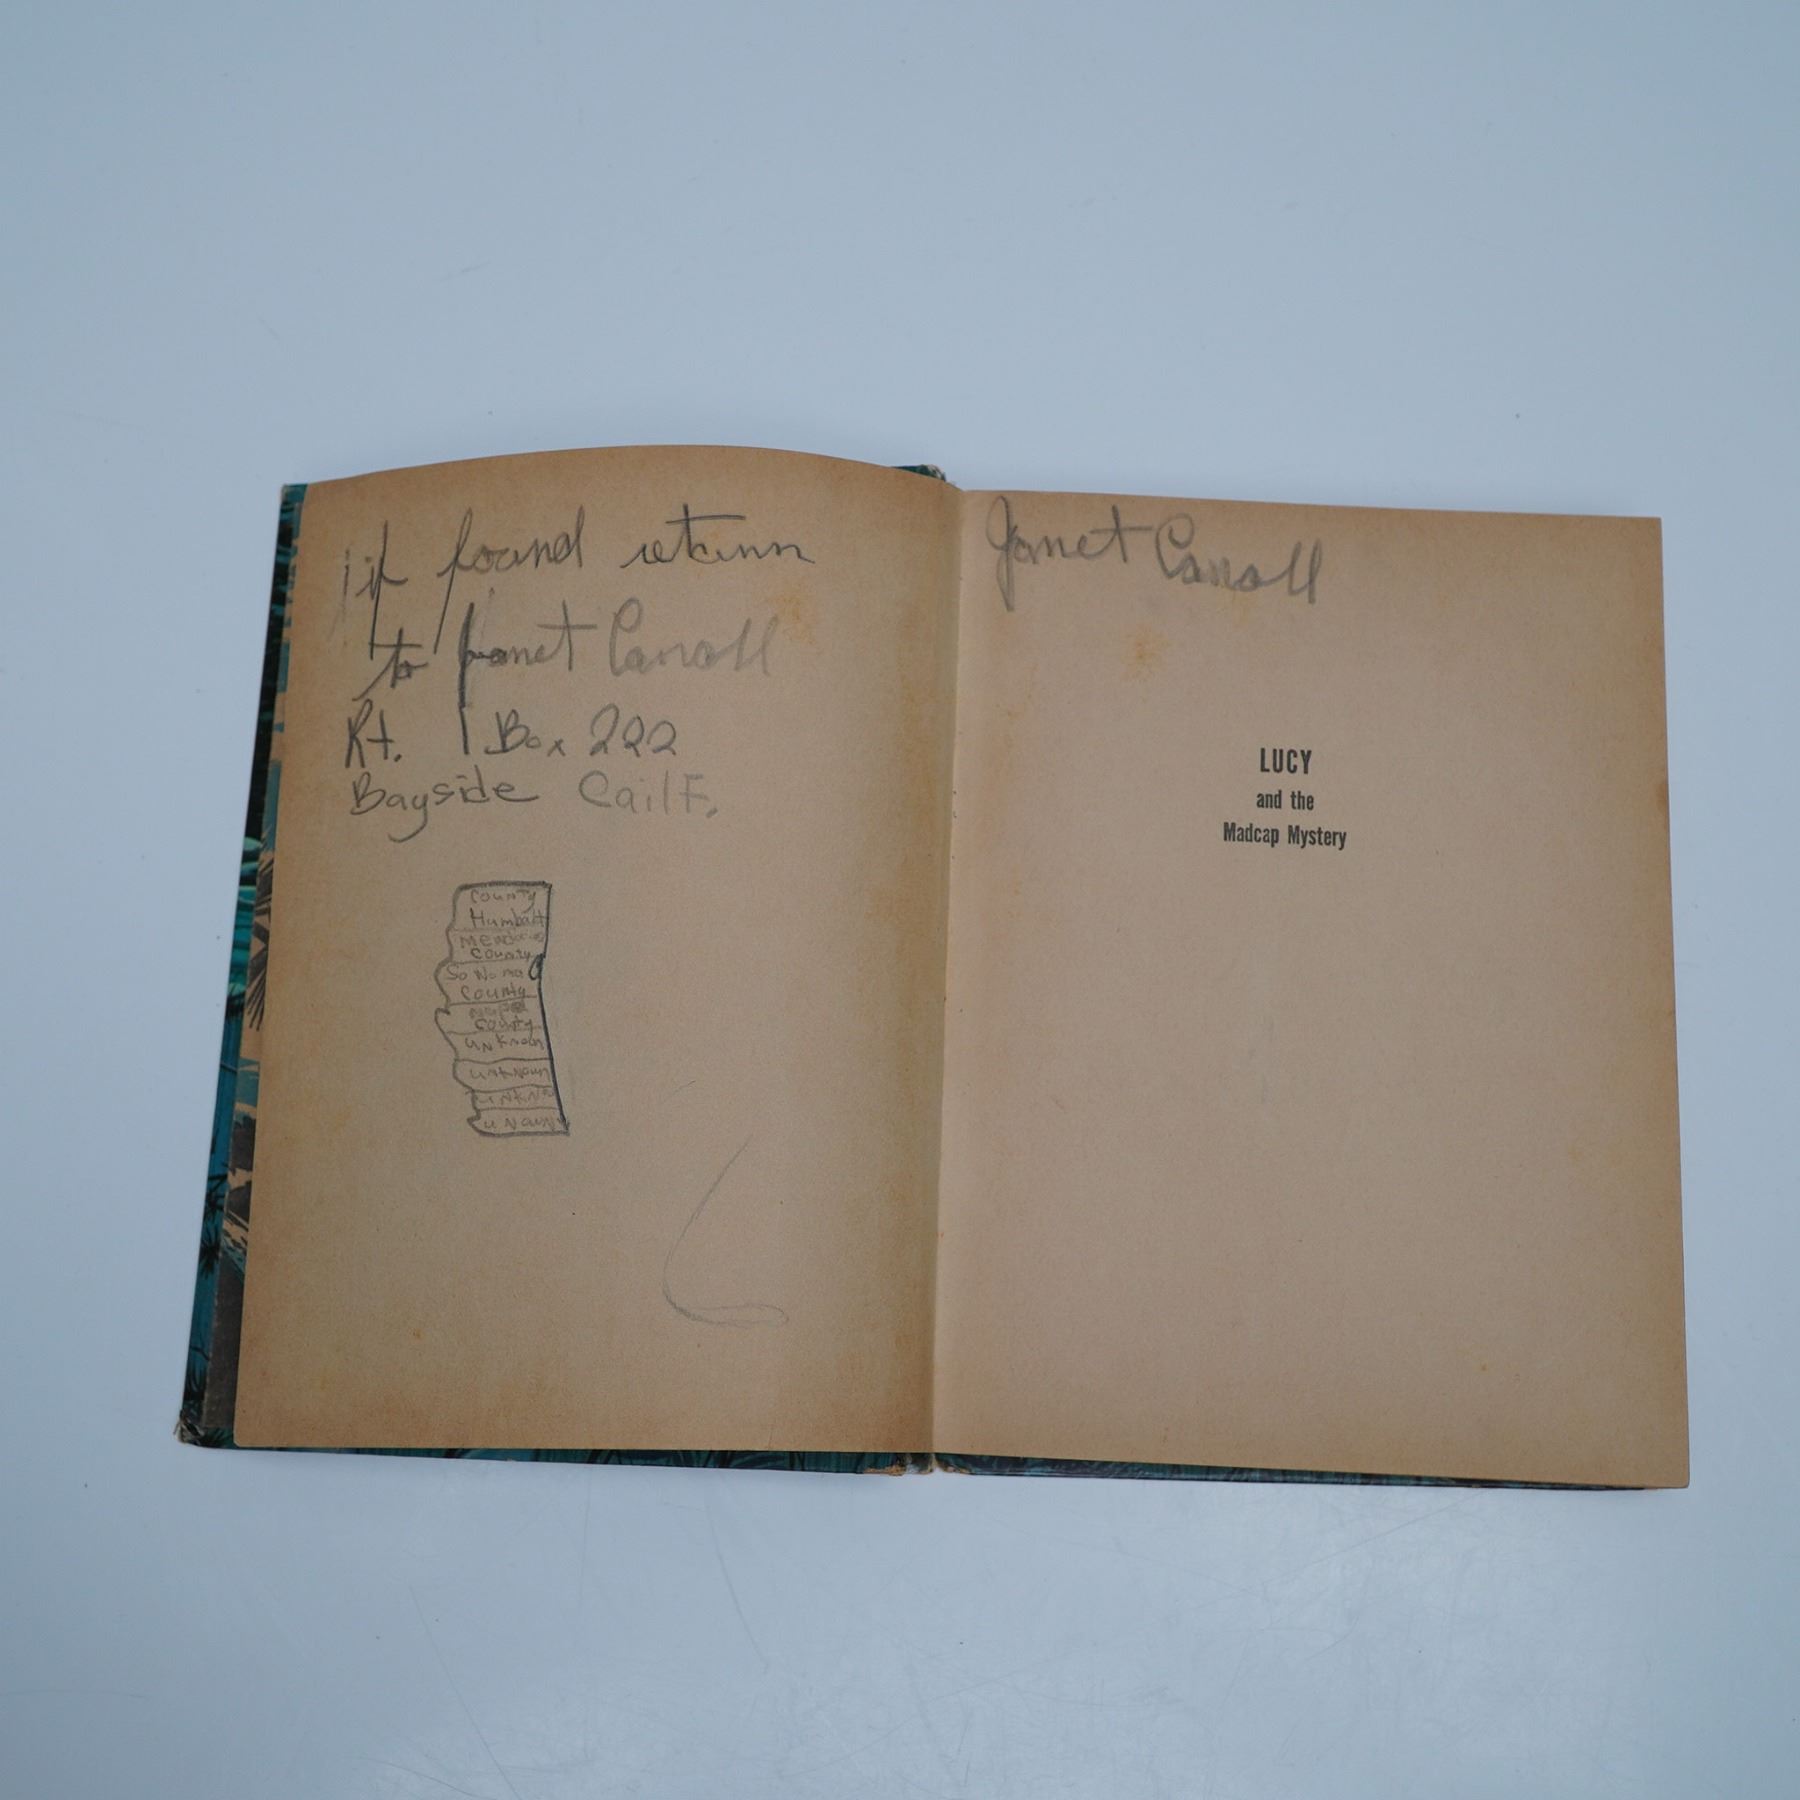 if found return
to Janet Carroll
Rt. 1 Box 222
Bayside CailF.
County
Humbolt
Mendocino
County
SoNoma
County
Napa
County
unknown
unknown
unkno
unown
Janet Carroll
LUCY
and the
Madcap Mystery